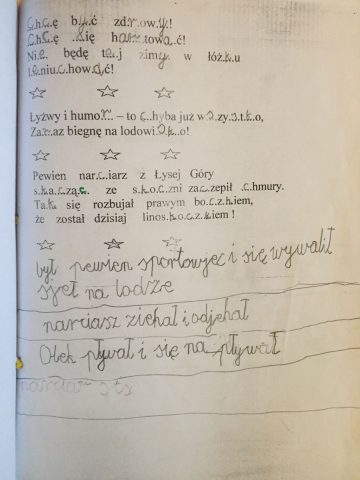 Chcę być zdrowy!
Chcę się hartować!
Nie będę tej zimy w łóżku
leniuchować!
Łyżwy i humor – to chyba już wszystko,
Zaraz biegnę na lodowisko!
Pewien narciarz z Łysej Góry
skacząc ze skoczni zaczepił chmury.
Tak się rozbujał prawym boczkiem,
że został dzisiaj linoskoczkiem!
był pewien sportowjec i się wywalił
sjeł na lodze
narciasz ziehał i odjehał
Olek pływał i się na pływał